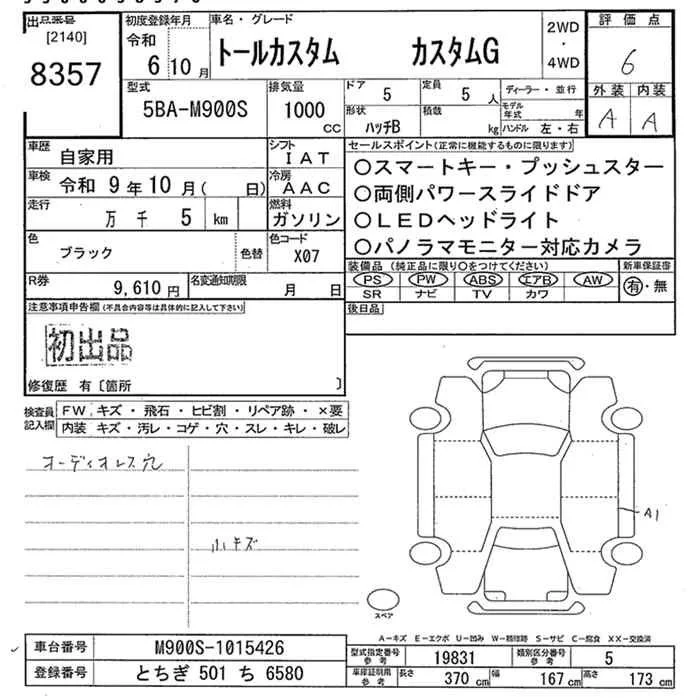 出品番号
[2140]
8357
初度登録年月
令和
6 10 月
車名・グレード
トールカスタム カスタムG
2WD
・
4WD
評価点
6
外装 内装
A A
型式
5BA-M900S
排気量
1000
CC
ドア
5
定員
5 人
形状
ハッチB
積載
kg
ディーラー・並行
モデル年式 年
ハンドル 左・右
車歴
自家用
シフト
IAT
車検
令和 9 年 10 月 ( 日)
冷房
AAC
走行
万 千 5 km
燃料
ガソリン
色
ブラック
色替
色コード
X07
R券
9,610 円
名変通知期限
月 日
セールスポイント(正常に機能するものに限ります)
○スマートキー・プッシュスター
○両側パワースライドドア
○LEDヘッドライト
○パノラマモニター対応カメラ
装備品 (純正品に限り○をつけてください)
新車保証書
PS PW ABS エアB AW
有・無
SR ナビ TV カワ
後日品
注意事項申告欄 (不具合内容等は具体的に記入して下さい)
初出品
修復歴 有〔箇所 〕
検査員
記入欄
FW キズ・飛石・ヒビ割・リペア跡・×要
内装 キズ・汚レ・コゲ・穴・スレ・キレ・破レ
オーディオレス穴
小キズ
A1
スペア
A－キズ E－エクボ U－凹み W－補修跡 S－サビ C－腐食 XX－交換済
車台番号
M900S-1015426
登録番号
とちぎ 501 ち 6580
型式指定番号
参考
19831
類別区分番号
参考
5
車庫証明用
参考
長さ 370 cm
幅 167 cm
高さ 173 cm